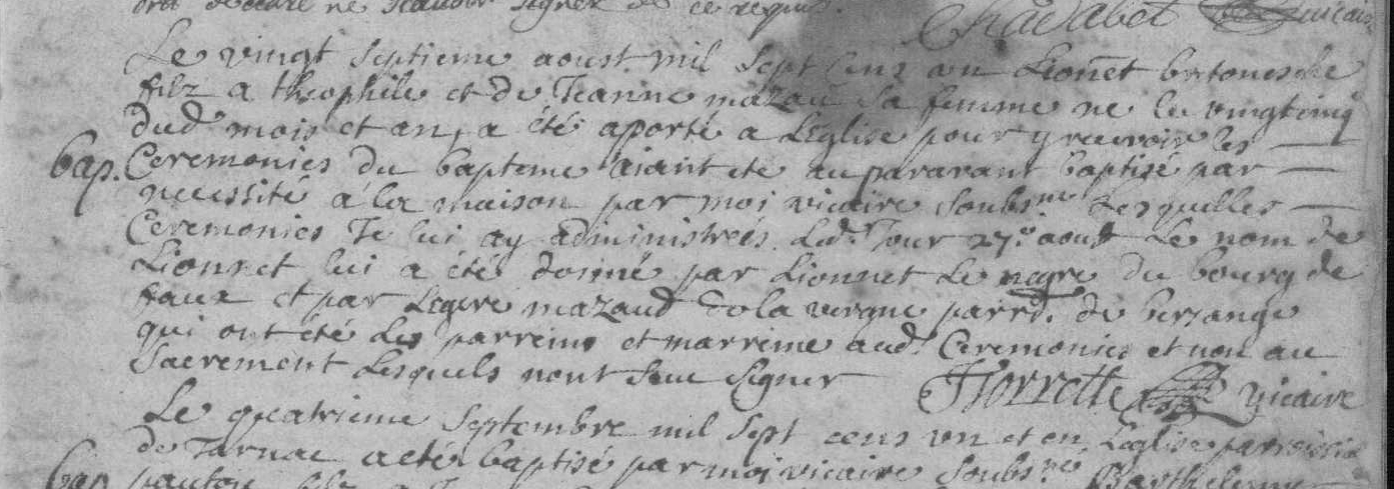 declaré ne scavoir signer de ce requis.
Chadabet vicaire
Le vingt septieme aoust mil sept cens un Lionnet betouleshe
filz a theophile et de Jeanne mazau sa femme ne le vingt cinq
dud mois et an, a été aporté a Leglise pour y recevoir les
Bap. Ceremonies du bapteme aiant ete auparavant baptisé par
necessité a la maison par moi vicaire soubs.né Lesquelles
Ceremonies Je lui ay administrées. Led. Jour 27.e aoust Le nom de
Lionnet lui a été donné par Lionnet Le negre du bourg de
faux et par Legere mazaud de la vergne parr.d. de
qui ont été Les parreins et marreine aud. Ceremonies et non au
Sacrement Lesquels nont sceu signer Florrette vicaire
Le quatrieme Septembre mil sept cens un et en Leglise parroissia
de Tarnac a eté baptisé par moi vicaire soubs.né Barthelemy
Bap